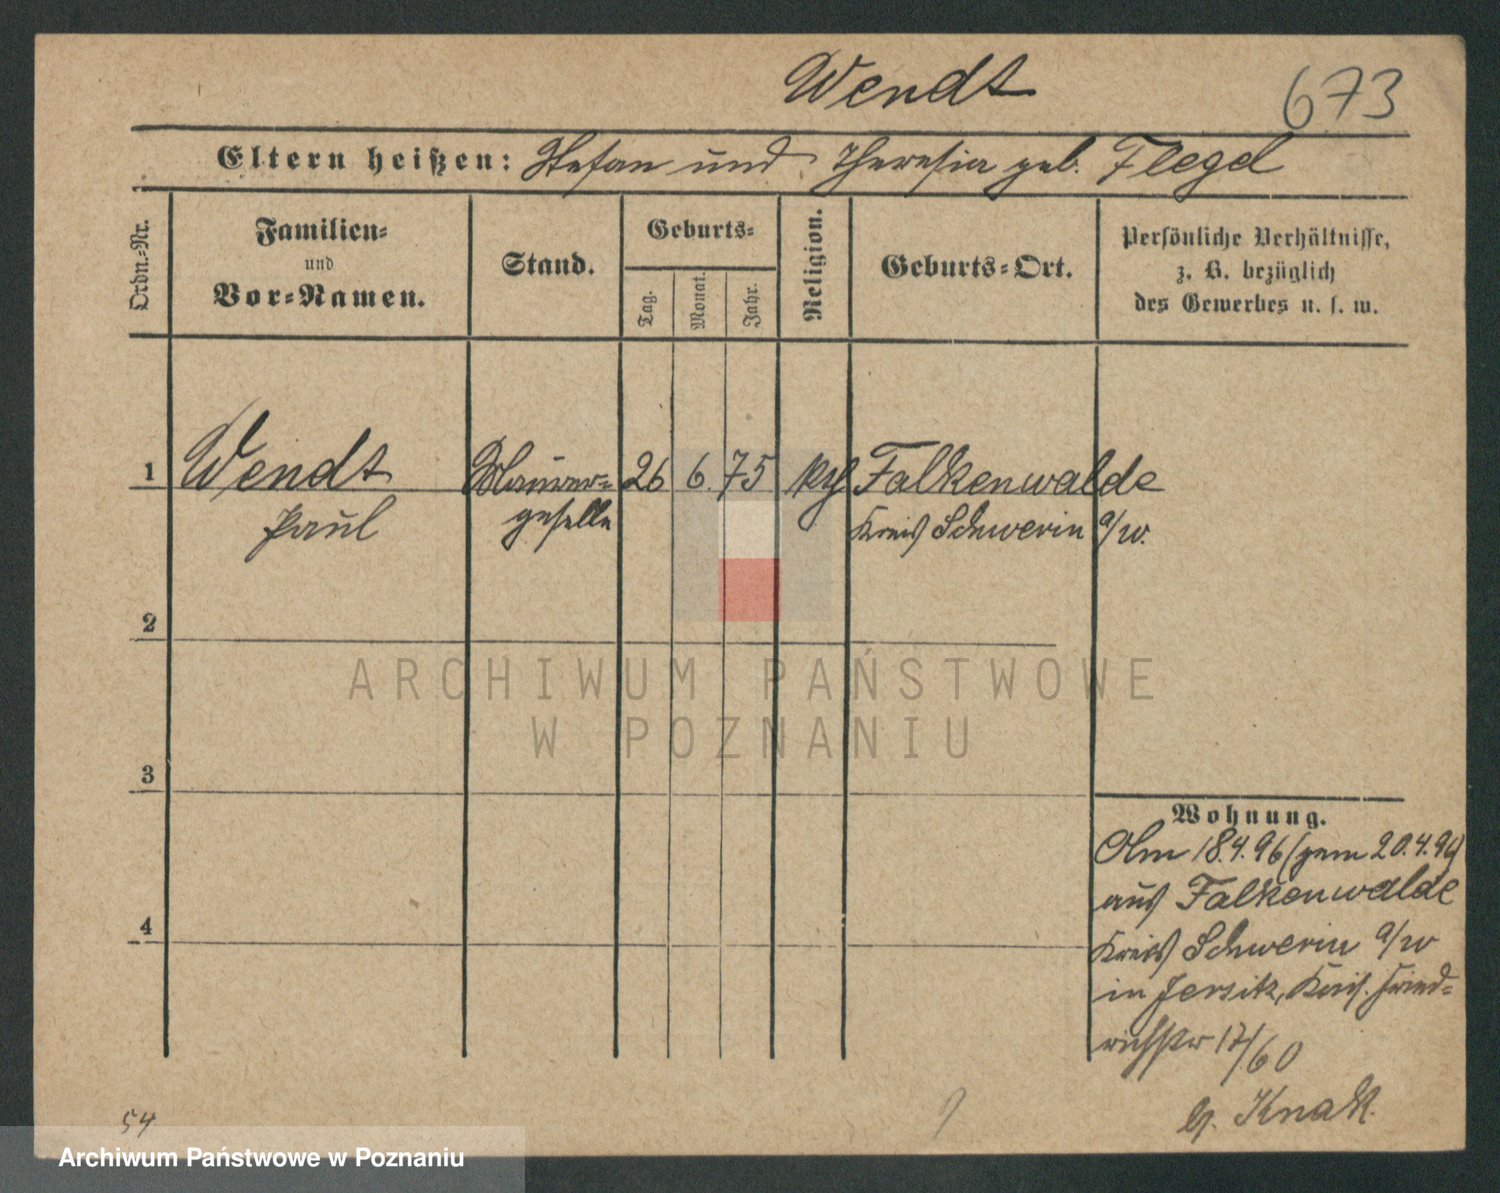 Wendt 673
Eltern heißen: Stefan und Theresia geb. Flegel
Ordn.-Nr.
Familien-
und
Vor-Namen.
Stand.
Geburts-
Tag.
Monat.
Jahr.
Religion.
Geburts-Ort.
Persönliche Verhältnisse,
z. B. bezüglich
des Gewerbes u. s. w.
1 Wendt Maurer- 26 6. 75 Falkenwalde
Paul geselle Kreis Schwerin a/w.
2
ARCHIWUM PAŃSTWOWE
W POZNANIU
3
Wohnung.
18.4.96 (gem 20.4.96)
aus Falkenwalde
4
Kreis Schwerin a/w
in Jersitz, Kais. Fried-
richstr 17/60
b. Knak.
54
Archiwum Państwowe w Poznaniu